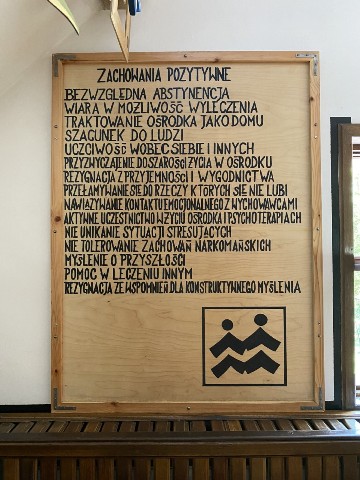 ZACHOWANIA POZYTYWNE
BEZWZGLĘDNA ABSTYNENCJA
WIARA W MOŻLIWOŚĆ WYLECZENIA
TRAKTOWANIE OŚRODKA JAKO DOMU
SZACUNEK DO LUDZI
UCZCIWOŚĆ WOBEC SIEBIE I INNYCH
PRZYZWYCZAJENIE DO SZAROŚCI ŻYCIA W OŚRODKU
REZYGNACJA Z PRZYJEMNOŚCI I WYGODNICTWA
PRZEŁAMYWANIE SIĘ DO RZECZY KTÓRYCH SIĘ NIE LUBI
NAWIĄZYWANIE KONTAKTU EMOCJONALNEGO Z WYCHOWAWCAMI
AKTYWNE UCZESTNICTWO W ŻYCIU OŚRODKA I PSYCHOTERAPIACH
NIE UNIKANIE SYTUACJI STRESUJĄCYCH
NIE TOLEROWANIE ZACHOWAŃ NARKOMAŃSKICH
MYŚLENIE O PRZYSZŁOŚCI
POMOC W LECZENIU INNYM
REZYGNACJA ZE WSPOMNIEŃ DLA KONSTRUKTYWNEGO MYŚLENIA